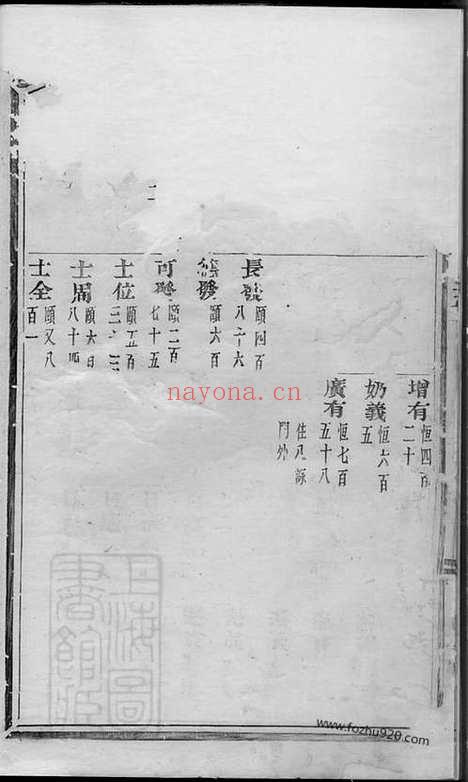 增有 恒四百
二十
奶義 恒六百
五
廣有 恒七百
五十八
住八
門外
長發 頤四百
八十六
發 頤六百
可 頤二百
七十五
士位 頤五百
三十三
士周 頤六百
八十四
士全 頤又八
百一
nayona.cn
上海圖
書館
www.fozhu920.com